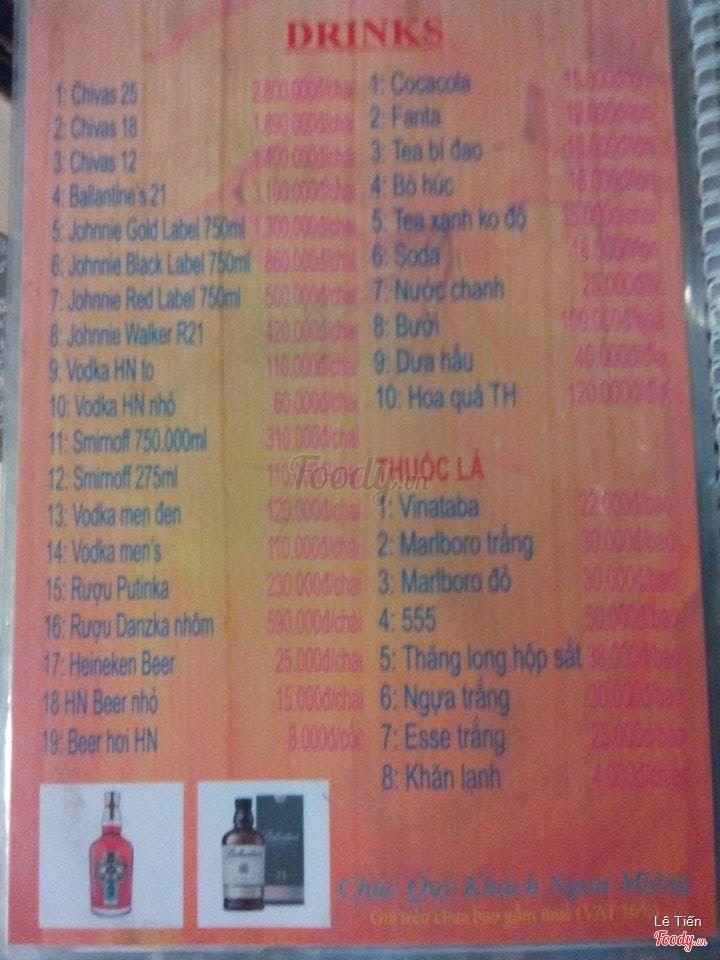 DRINKS
1: Chivas 25 2.800.000đ/chai
2: Chivas 18
3: Chivas 12 1.400.000đ/chai
4: Ballantine's 21 3.100.000đ/chai
5: Johnnie Gold Label 750ml 1.300.000đ/chai
6: Johnnie Black Label 750ml 860.000đ/chai
7: Johnnie Red Label 750ml 500.000đ/chai
8: Johnnie Walker R21 420.000đ/chai
9: Vodka HN to 110.000đ/chai
10: Vodka HN nhỏ 60.000đ/chai
11: Smirnoff 750.000ml 310.000đ/chai
12: Smirnoff 275ml
13: Vodka men đen 120.000đ/chai
14: Vodka men's 110.000đ/chai
15: Rượu Putinka 230.000đ/chai
16: Rượu Danzka nhôm 590.000đ/chai
17: Heineken Beer 25.000đ/chai
18 HN Beer nhỏ 15.000đ/chai
19: Beer hơi HN 8.000đ/cốc
1: Cocacola
2: Fanta
3: Tea bí đao
4: Bò húc
5: Tea xanh ko độ 15.000đ/chai
6: Soda
7: Nước chanh
8: Bưởi
9: Dưa hấu 40.000đ/đĩa
10: Hoa quả TH 120.000đ/đĩa
THUỐC LÁ
1: Vinataba 22.000đ/bao
2: Marlboro trắng 30.000đ/bao
3: Marlboro đỏ 30.000đ/bao
4: 555 50.000đ/bao
5: Thăng long hộp sắt 38.000đ/bao
6: Ngựa trắng 30.000đ/bao
7: Esse trắng 25.000đ/bao
8: Khăn lạnh 4.000đ/chiếc
Ballantine's
21
Chúc Quý Khách Ngon Miệng
Giá trên chưa bao gồm thuế (VAT 10%)
Foody.vn
Lê Tiến
Foody.vn